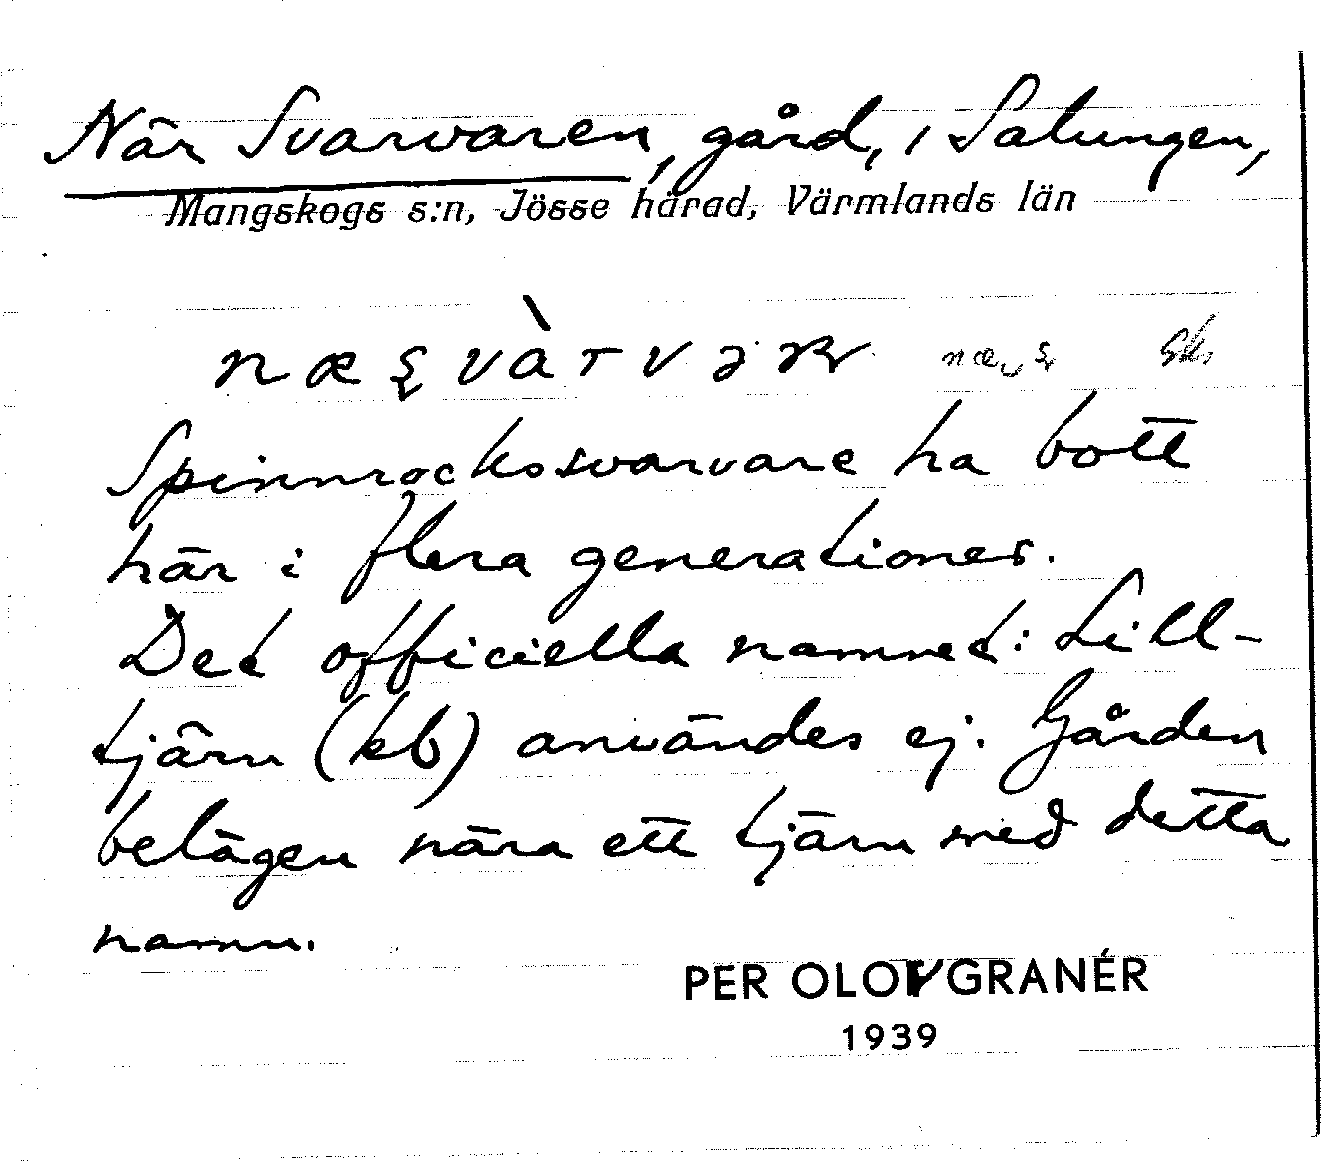 När Svarvaren, gård, i Salungen,
Mangskogs s:n, Jösse härad, Värmlands län
Spinnrockssvarvare ha bott
här i flera generationer.
Det officiella namnet: Lill-
tjärn (kb) användes ej. Gården
belägen nära ett tjärn med detta
namn.
PER OLOV GRANÉR
1939